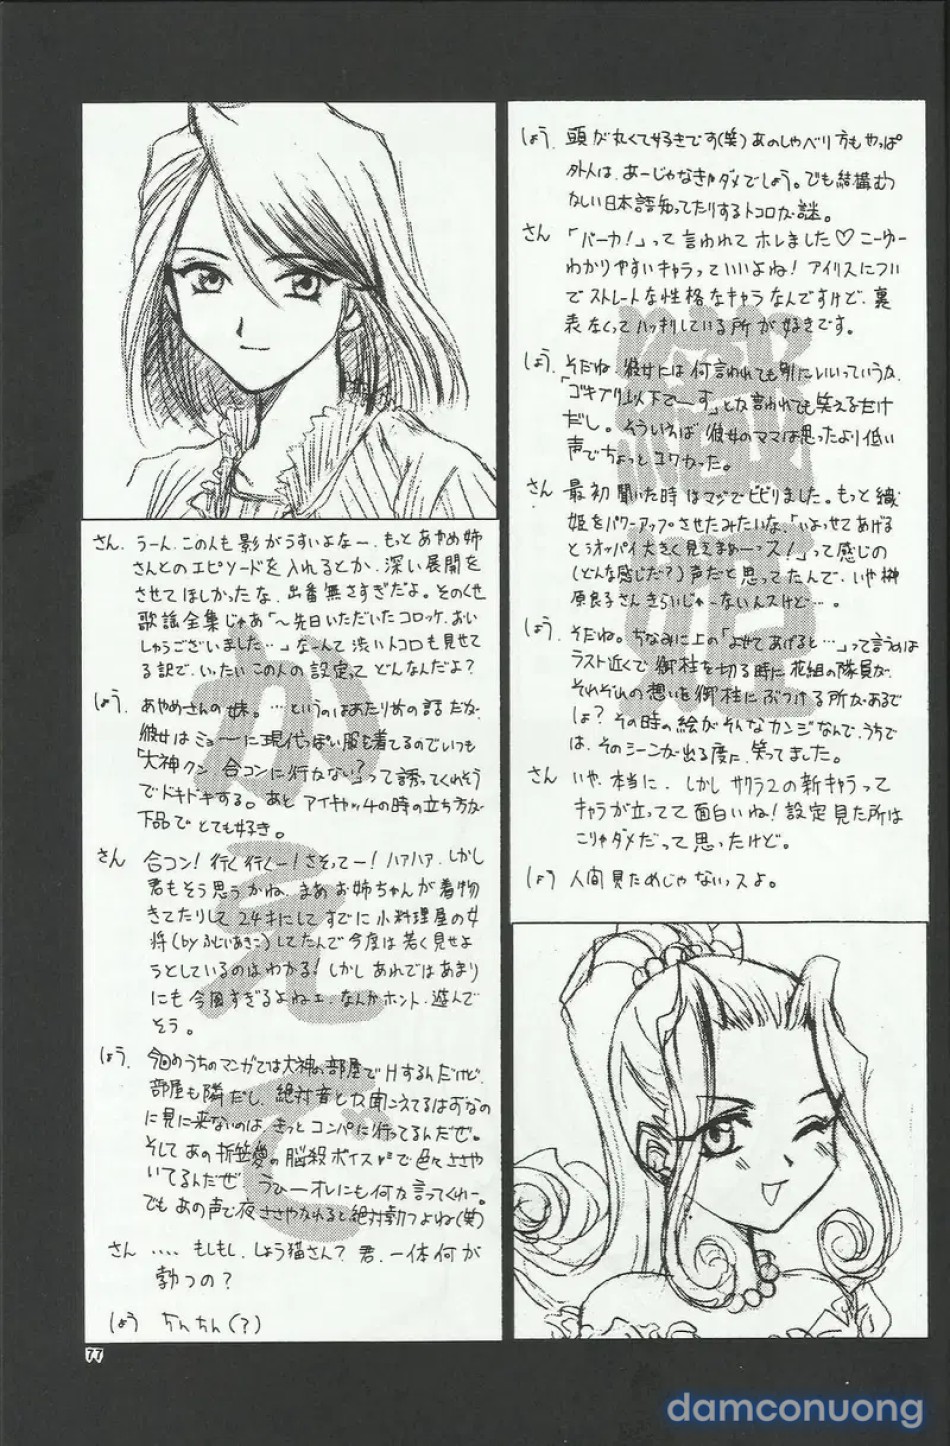 さん、うーん、この人も影がうすいよなー、もっとあやめ姉
さんとのエピソードを入れるとか、深い展開を
させてほしかったな、出番無さすぎだよ。そのくせ
歌謡全集じゃあ「〜先日いただいたコロッケ、おい
しゅうございました…」なーんて渋いトコロも見せて
る訳で、いったいこの人の設定ってどんなんだよ?
しょう、あやめさんの妹。…というのはあたりめの話だが、
彼女はミョーに現代っぽい服を着てるのでいつも
「大神クン、合コンに行かない?」って誘ってくれそう
でドキドキする。あと アイキャッチの時の立ち方が
下品で とても好き。
さん 合コン!行く行くー!さそってー!ハァハァ、しかし
君もそう思うかね、まあ お姉ちゃんが着物
きてたりして 24才にして すでに 小料理屋の女
将(by ふじいあきこ)してたんで 今度は若く見せよ
うとしているのはわかる!しかし あれではあまり
にも 今風すぎるよねェ、なんかホント、遊んで
そう。
しょう、今回のうちのマンガでは大神の部屋でHするんだけど、
部屋も隣だし、絶対音とか聞こえてるはずなの
に見に来ないのは、きっと コンパに行ってるんだぜ。
そして あの 折笠愛の 脳殺ボイスで 色々ささや
いてるんだぜ うひーオレにも何か言ってくれー。
でも あの声で夜ささやかれると絶対勃つよね(笑)
さん ‥‥ もしもし、しょう猫さん? 君、一体何が
勃つの?
しょう ちんちん(?)
77
しょう、頭が丸くて好きです(笑) あのしゃべり方もやっぱ
外人は、あーじゃなきゃダメでしょう。でも 結構むつ
かしい日本語知ってたりするトコロが謎。
さん 「バーカ!」って言われてホレました♡ こーゆー
わかりやすいキャラっていいよね! アイリスについ
で ストレートな性格なキャラなんですけど、裏
表なくってハッキリしている所が好きです。
しょう、そだね、彼女には何言われても別にいいっていうか、
「ゴキブリ以下でーす」とか言われても笑えるだけ
だし。そういえば 彼女のママは思ったより低い
声でちょっとコワかった。
さん 最初聞いた時はマジでビビりました。もっと織
姫をパワーアップさせたみたいな、「いよってあげる
とうオッパイ大きく見えまぁーっス!」って感じの
(どんな感じだ?) 声だと思ってたんで、いや榊
原良子さんきらいじゃーないんスけど…。
しょう、そだね。ちなみに上の「よせてあげると…」って言うのは
ラスト近くで御柱を切る時に花組の隊員が、
それぞれの想いを御柱にぶつける所があるで
しょ? その時の絵がそんなカンジなんで、うちで
は、そのシーンが出る度に笑ってました。
さん いや、本当に、しかし サクラ2の新キャラって
キャラが立ってて面白いね! 設定見た所は
こりゃダメだって思ったけど。
しょう 人間見ためじゃないっスよ。
織姫
かえで
damconuong